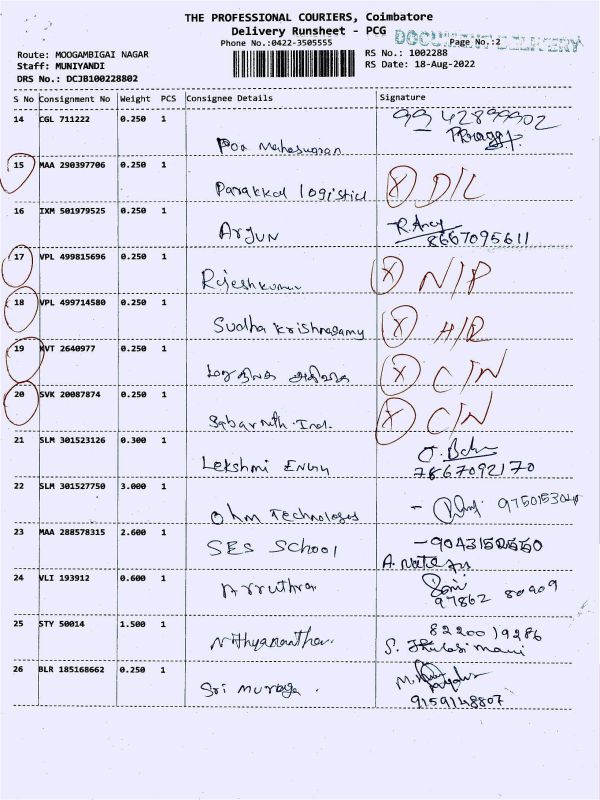 THE PROFESSIONAL COURIERS, Coimbatore
Delivery Runsheet - PCG
Phone No.:0422-3505555
DOCUMENT DELIVERY
Page No.:2
Route: MOOGAMBIGAI NAGAR
RS No.: 1002288
Staff: MUNIYANDI
RS Date: 18-Aug-2022
DRS No.: DCJB100228802
S No Consignment No Weight PCS Consignee Details Signature
14 CGL 711222 0.250 1
9942899902
15 MAA 290397706 0.250 1
Parakkal logistics X D/L
16 IXM 501979525 0.250 1
Arjun
8667095611
17 VPL 499815696 0.250 1
Rijeshkumar X N/P
18 VPL 499714580 0.250 1
Sudha Krishnasamy X H/R
19 KVT 2640977 0.250 1
X C/N
20 SVK 20087874 0.250 1
Sabarnith Ind. X C/N
21 SLM 301523126 0.300 1
Lekshmi Engg
7867092170
22 SLM 301527750 3.000 1
Ohm Technologes
23 MAA 288578315 2.600 1
SES School
24 VLI 193912 0.600 1
Arruthra
97862 80909
25 STY 50014 1.500 1
82200 19286
Nithyananthan S. Thulasi mani
26 BLR 185168662 0.250 1
Sri Muruga .
9159148807